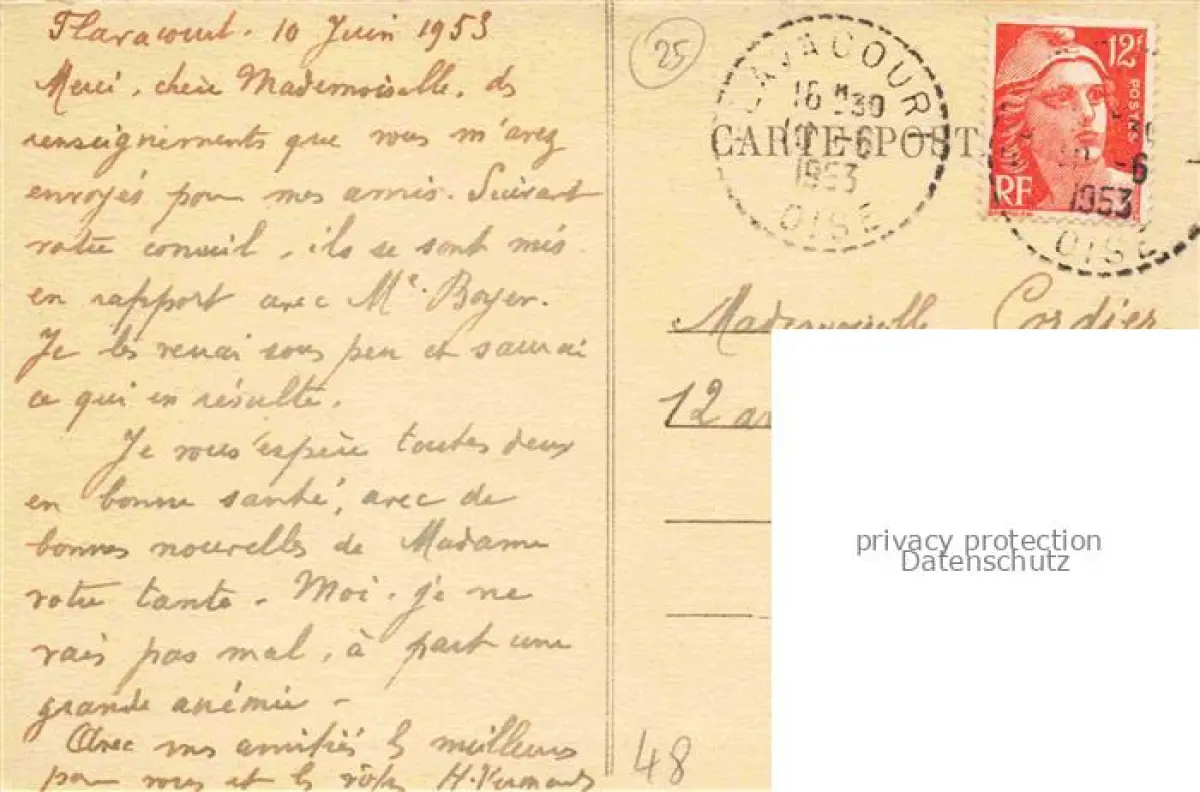 Flavacourt. 10 Juin 1953
Merci, chère Mademoiselle, ds
renseignements que vous m'avez
envoyés pour mes amis. Suivant
votre conseil, ils se sont mis
en rapport avec Me. Boyer.
Je les verrai sous peu et saurai
ce qui en résulte.
Je vous espère toutes deux
en bonne santé, avec de
bonnes nouvelles de Madame
votre tante. Moi, je ne
vais pas mal, à part une
grande anémie -
Avec mes amitiés ls meilleures
pour vous et ls vôtres H.
25
48
LAVACOUR
16 H 30
-6
1953
OISE
CARTE POST
12F
POSTES
RF
-6
1953
OISE
Mademoiselle Cordier
12 av
privacy protection
Datenschutz